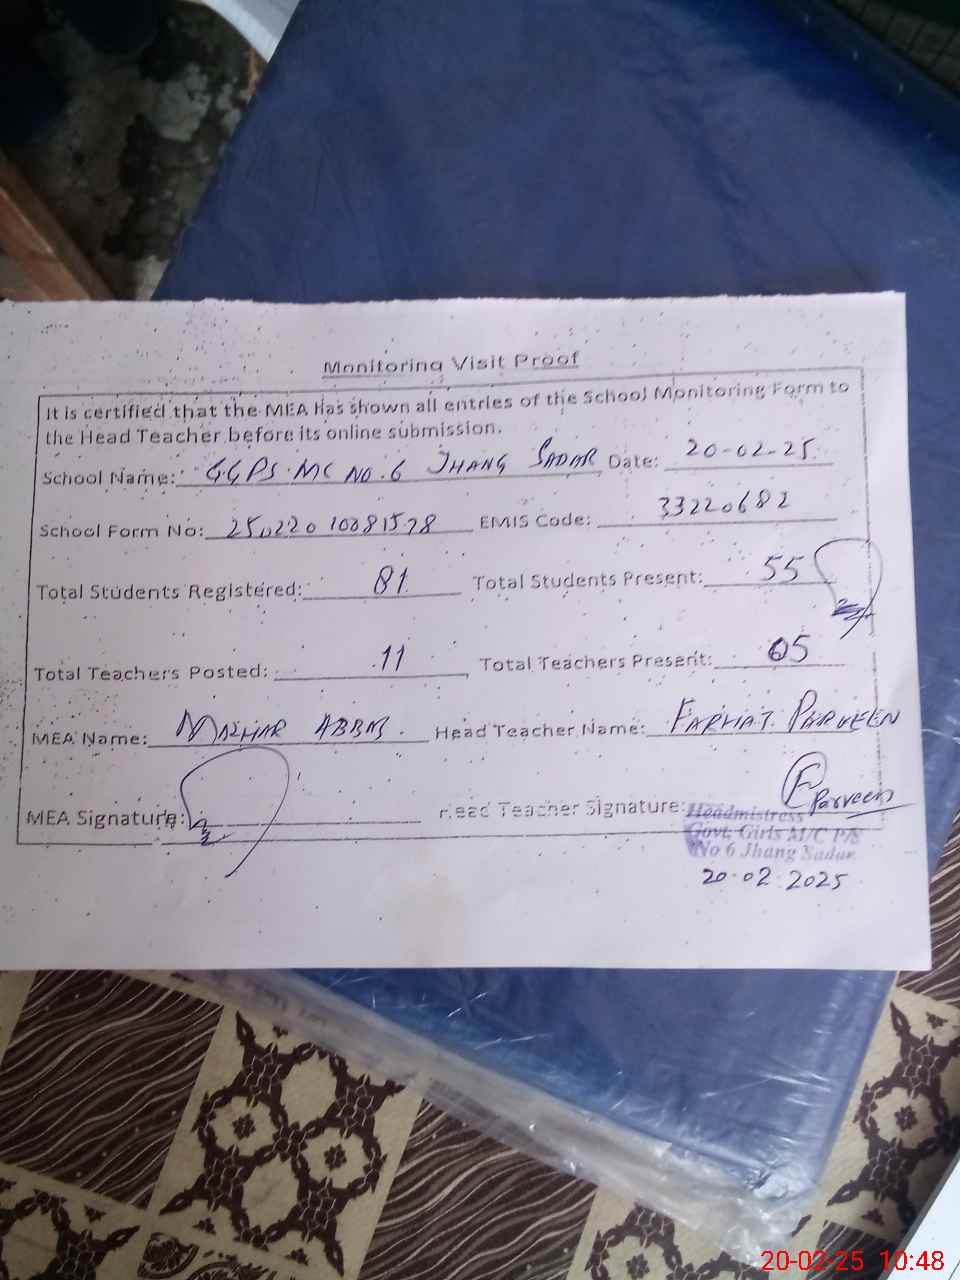 Monitoring Visit Proof
It is certified that the MEA has shown all entries of the School Monitoring Form to
the Head Teacher before its online submission.
School Name: GGPS MC NO. 6 JHANG SADAR Date: 20-02-25
School Form No: 25022010081578 EMIS Code: 33220682
Total Students Registered: 81 Total Students Present: 55
Total Teachers Posted: 11 Total Teachers Present: 05
MEA Name: MAZHAR ABBAS. Head Teacher Name: FARHAT PARVEEN
MEA Signature: Head Teacher Signature: F Parveen
Headmistress
Govt; Girls M/C P/S
No 6 Jhang Sadar
20.02.2025
20-02-25 10:48